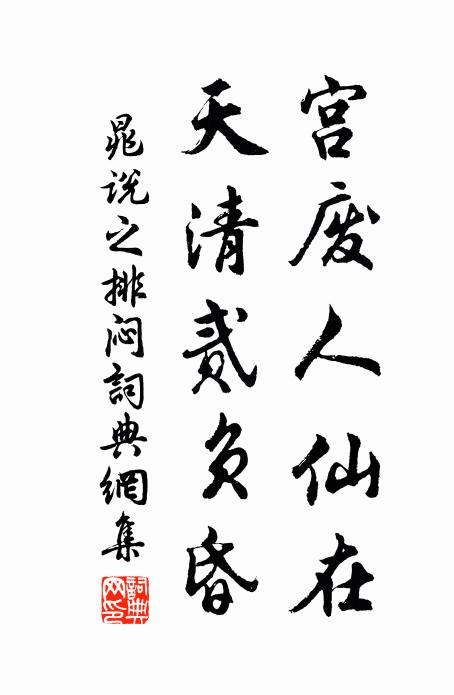 宫废人仙在
天清贰负昏
晁说之排闷詞典網集
詞典网印